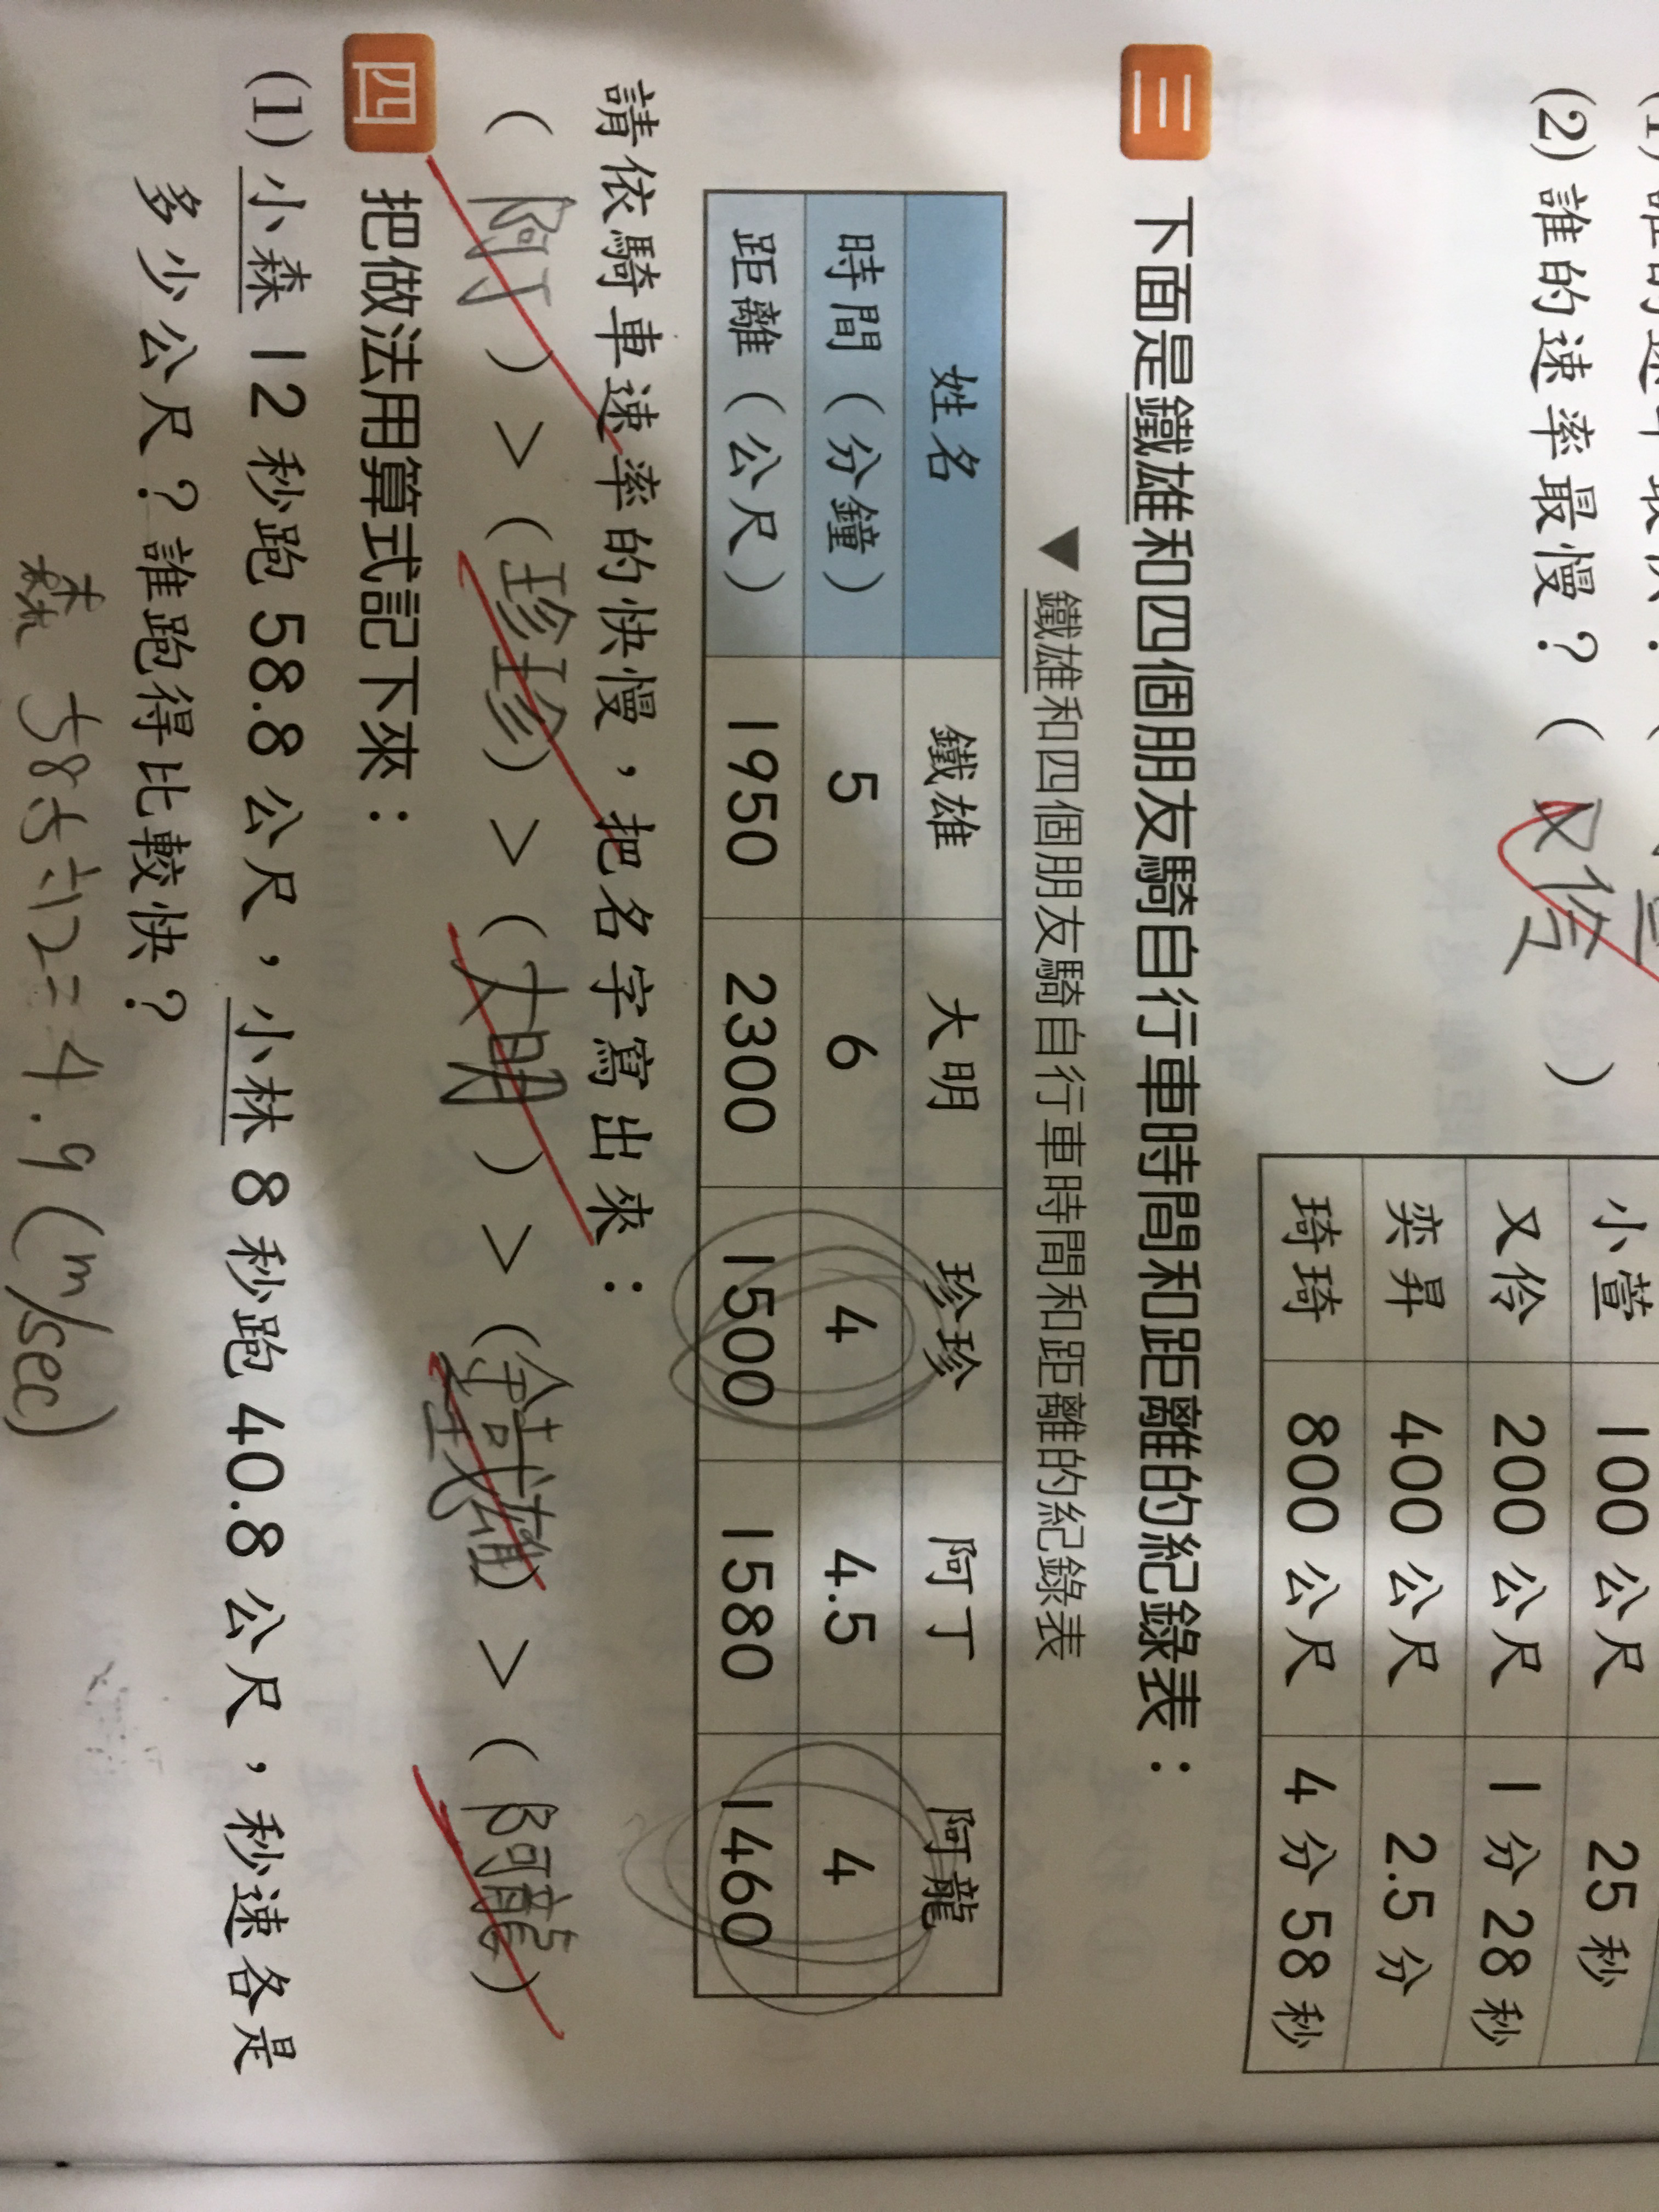 (2) 誰的速率最慢？（ 又伶 ）
小萱 100 公尺 25 秒
又伶 200 公尺 1 分 28 秒
奕昇 400 公尺 2.5 分
琦琦 800 公尺 4 分 58 秒
三 下面是鐵雄和四個朋友騎自行車時間和距離的紀錄表：
▼鐵雄和四個朋友騎自行車時間和距離的紀錄表
姓名 鐵雄 大明 珍珍 阿丁 阿龍
時間（分鐘） 5 6 4 4.5 4
距離（公尺） 1950 2300 1500 1580 1460
請依騎車速率的快慢，把名字寫出來：
（ 阿丁 ）>（ 珍珍 ）>（ 大明 ）>（ 鐵雄 ）>（ 阿龍 ）
四 把做法用算式記下來：
(1) 小森 12 秒跑 58.8 公尺，小林 8 秒跑 40.8 公尺，秒速各是
多少公尺？誰跑得比較快？
森 ÷12=4.9 (m/sec)